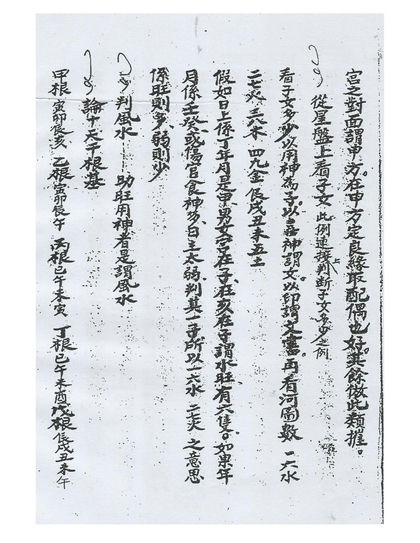 宫之對面謂申方。在申方定良緣取配偶也好。其餘倣此類推。
從星盤上看子女 此例速換判断子女多少之例
看子女多少以用神為子。以喜神謂女。以印謂文書。再看河圖數 一六水
二七火 三八木 四九金 辰戌丑未五土
假如日上係丁年月是甲男女字在子在亥在子謂水旺。有六隻。如東年
月係壬癸或傷官食神多日主太弱。判其一子所以一六水 二七火 之意思
係旺則多。弱則少
判風水 助旺用神者是謂風水
論十天干根基
甲根 寅卯辰亥 乙根寅卯辰午 丙根巳午未寅 丁根巳午未酉戊根 辰戌丑未午